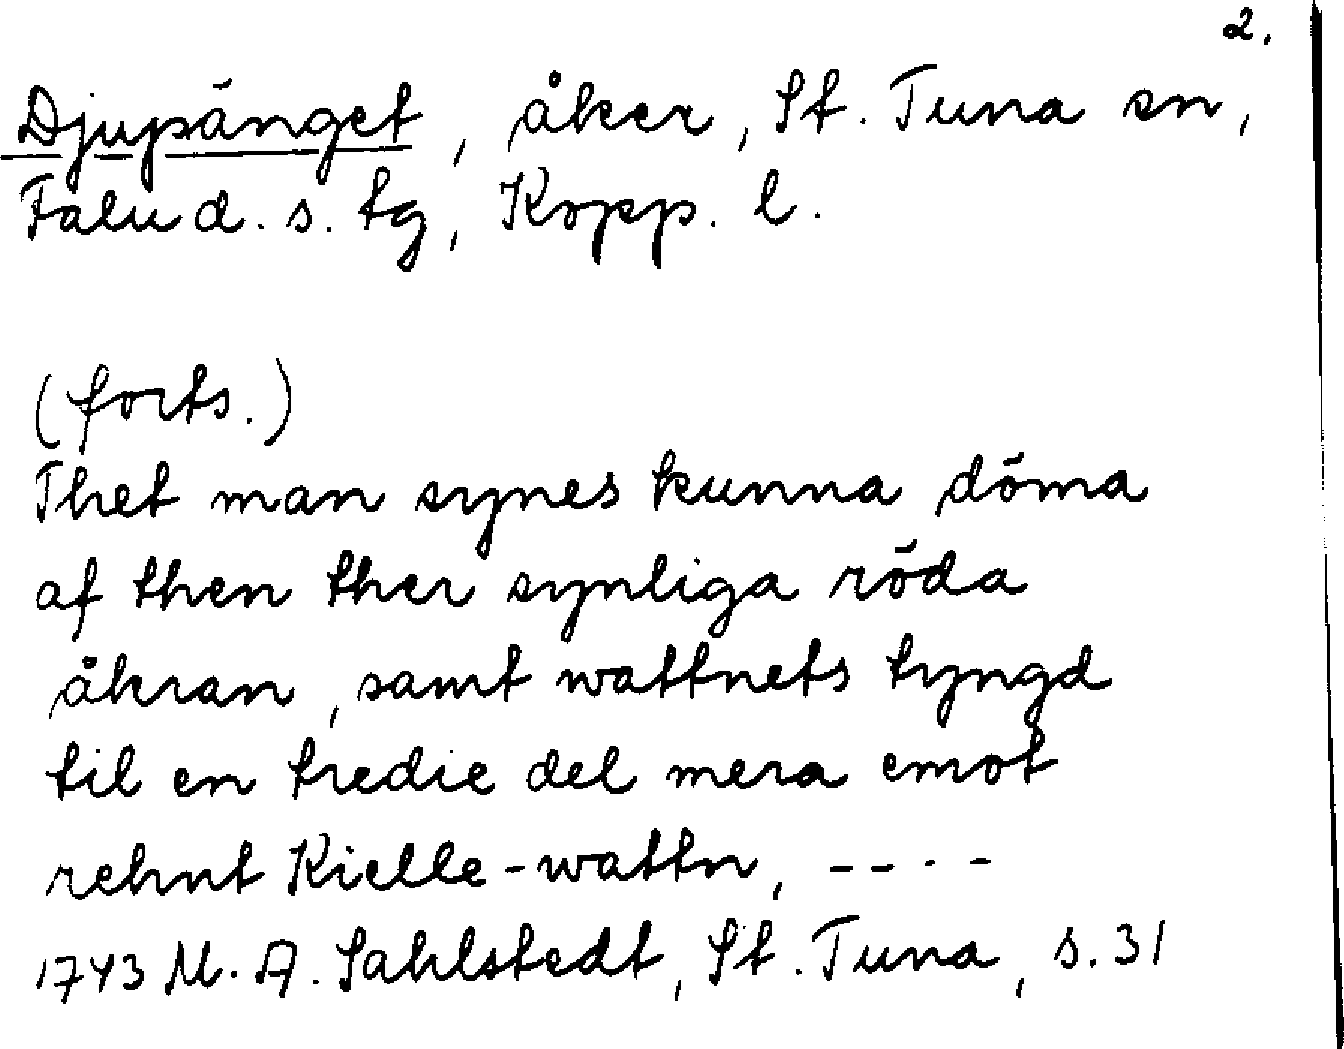 2.
Djupänget, åker, St. Tuna sn,
Falu d. s. tg, Kopp. l.
(forts.)
Thet man synes kunna döma
af then ther synliga röda
åkran, samt wattnets tyngd
til en tredie del mera emot
rehnt Kielle-wattn, -----
1743 M. A. Sahlstedt, St. Tuna, s. 31